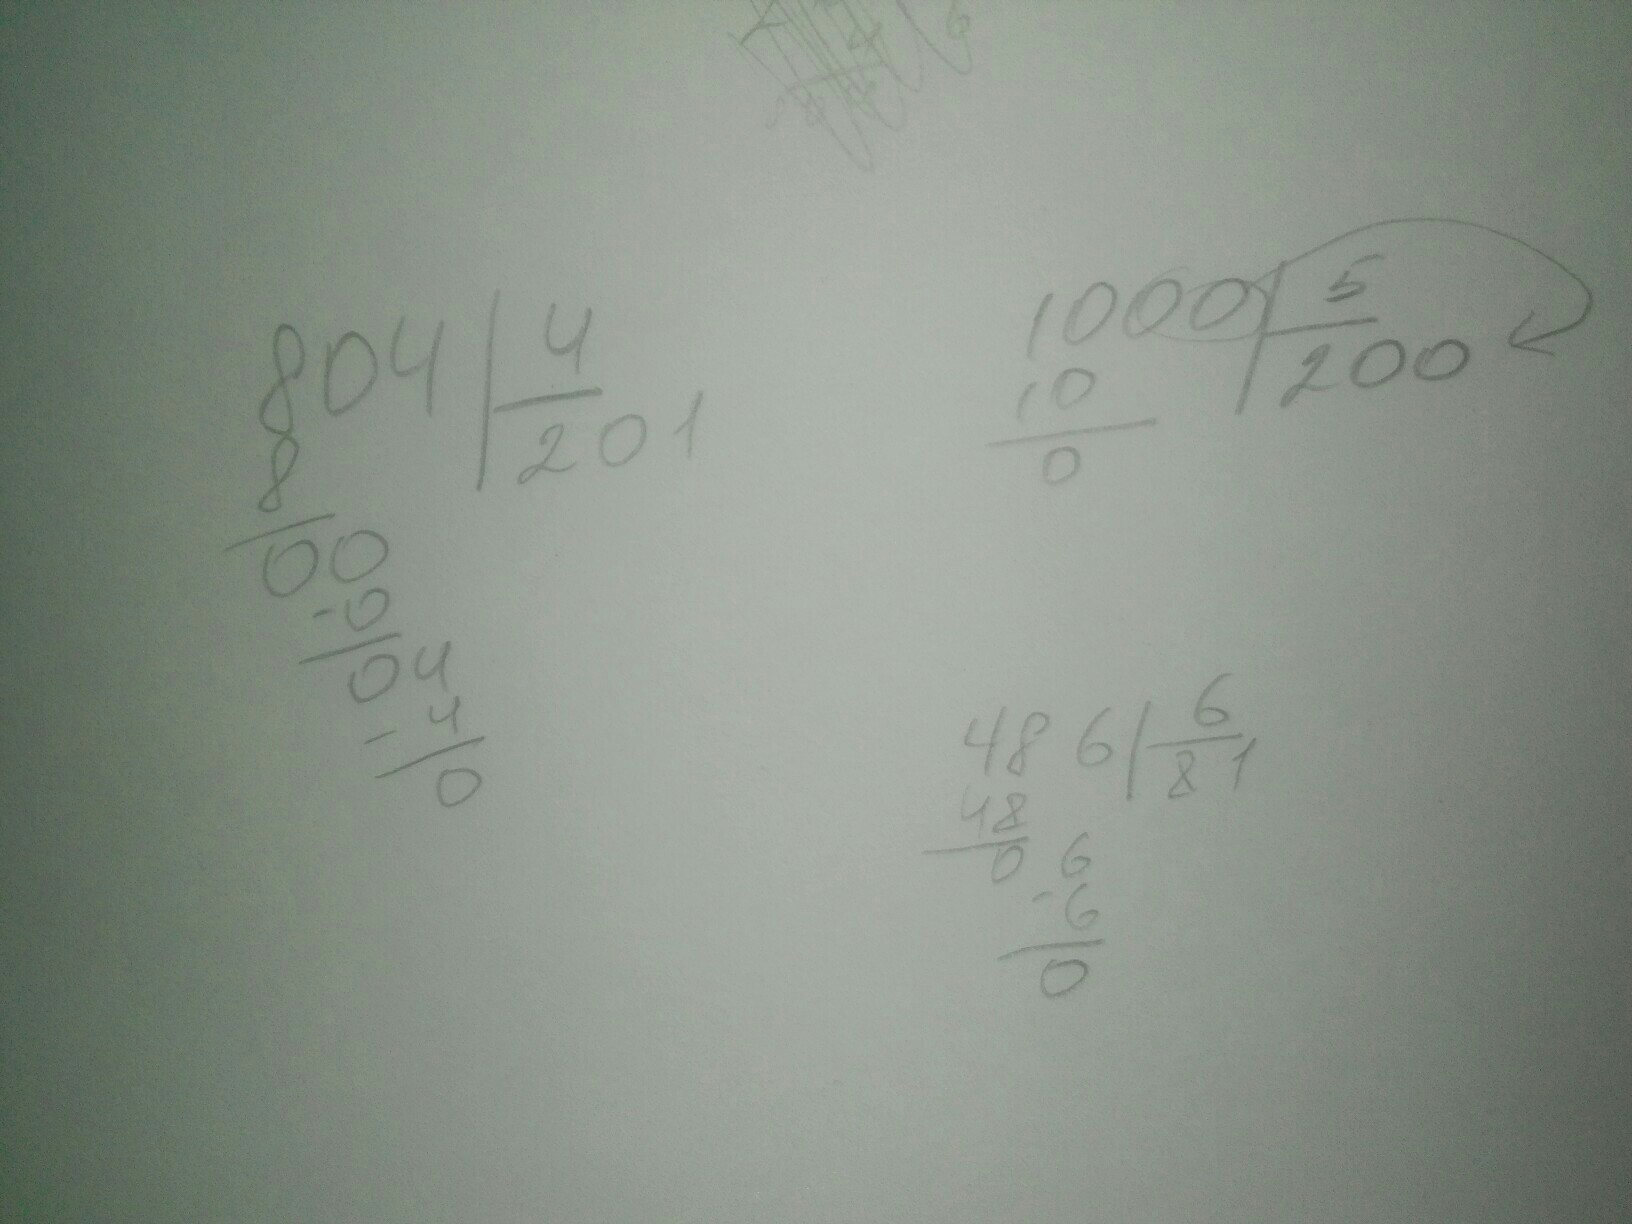 804 | 4
8 201
00
-0
04
-4
0
1000 | 5
10 200
0
486 | 6
48 81
0 6
-6
0